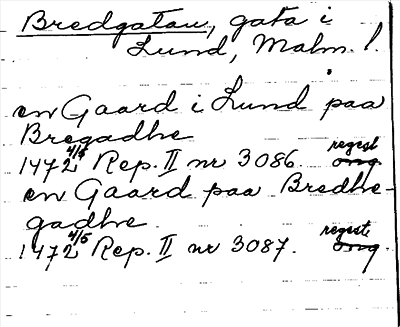 Bredgatan, gata i
Lund, Malm. l.
en Gaard i Lund paa
Bregadhe
1472 4/5 Rep. II nr 3086. regest
orig.
en Gaard paa Bredhe-
gadhe
1472 4/5 Rep. II nr 3087. regest
orig.